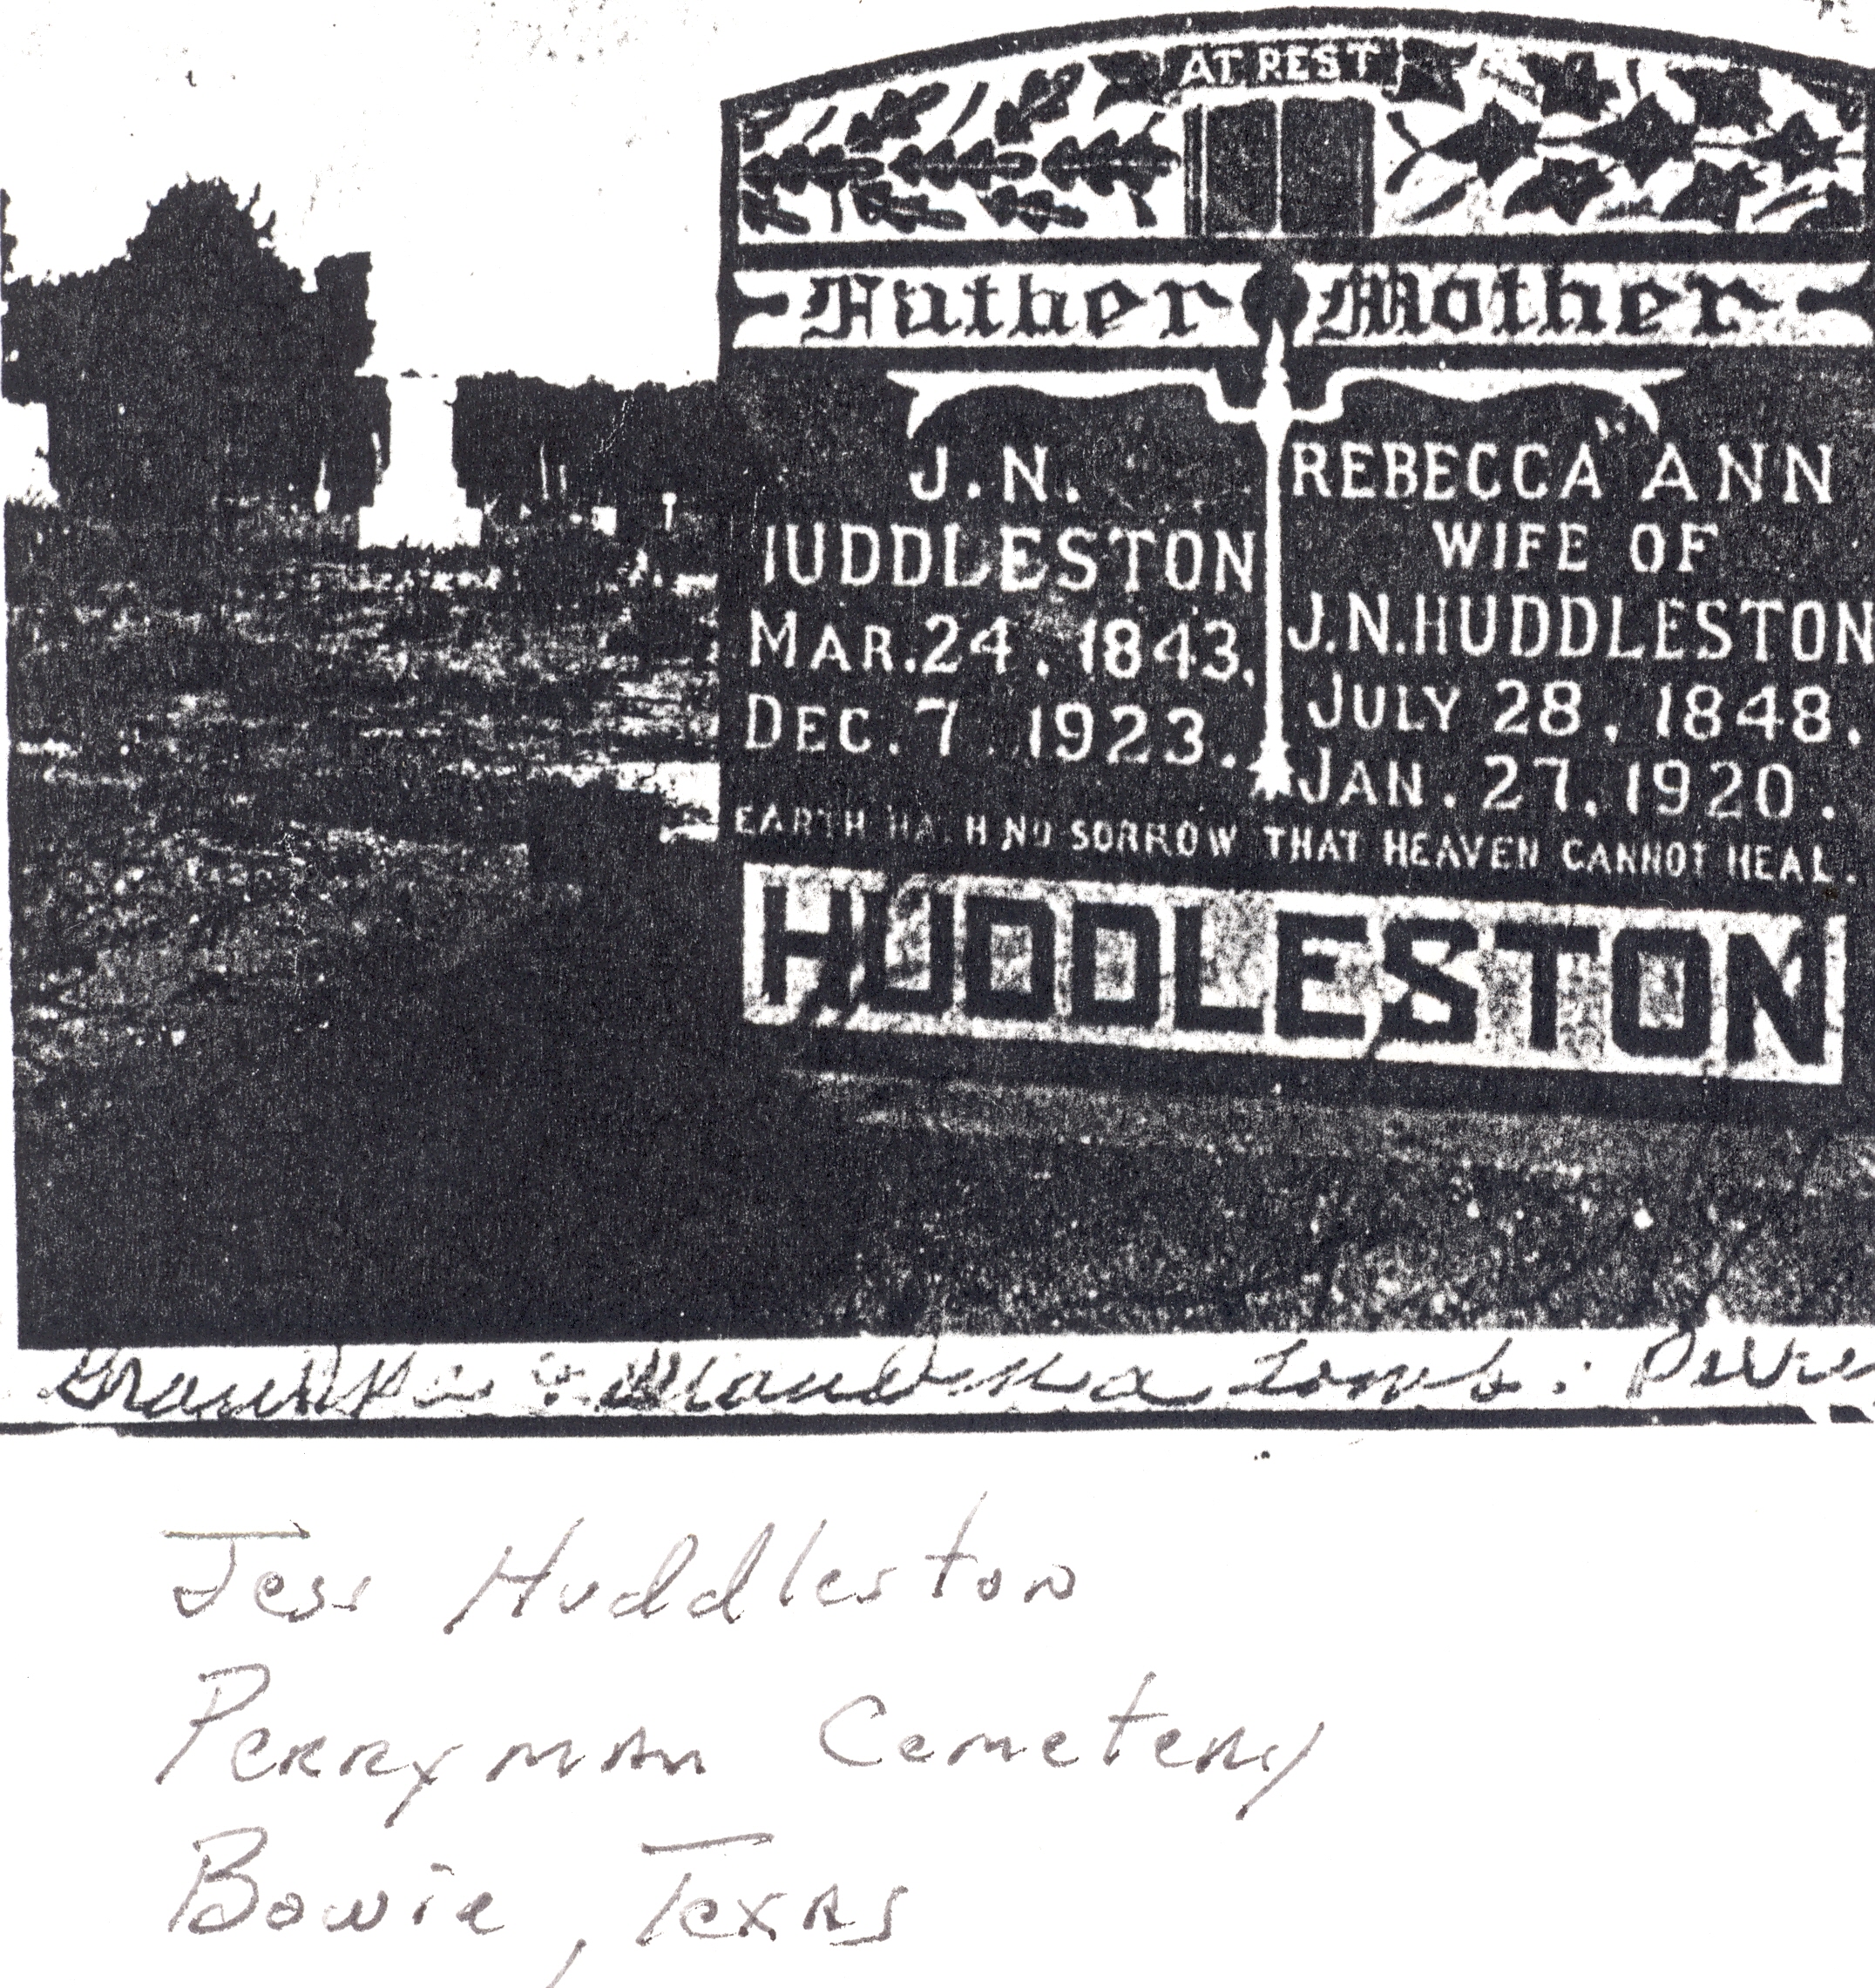 AT REST
Father Mother
J. N.
HUDDLESTON
MAR. 24. 1843.
DEC. 7. 1923.
REBECCA ANN
WIFE OF
J.N. HUDDLESTON
JULY 28. 1848.
JAN. 27. 1920.
EARTH HATH NO SORROW THAT HEAVEN CANNOT HEAL.
HUDDLESTON
GrandPa & GrandMa tomb.
Jess Huddleston
Perryman Cemetery
Bowie, Texas